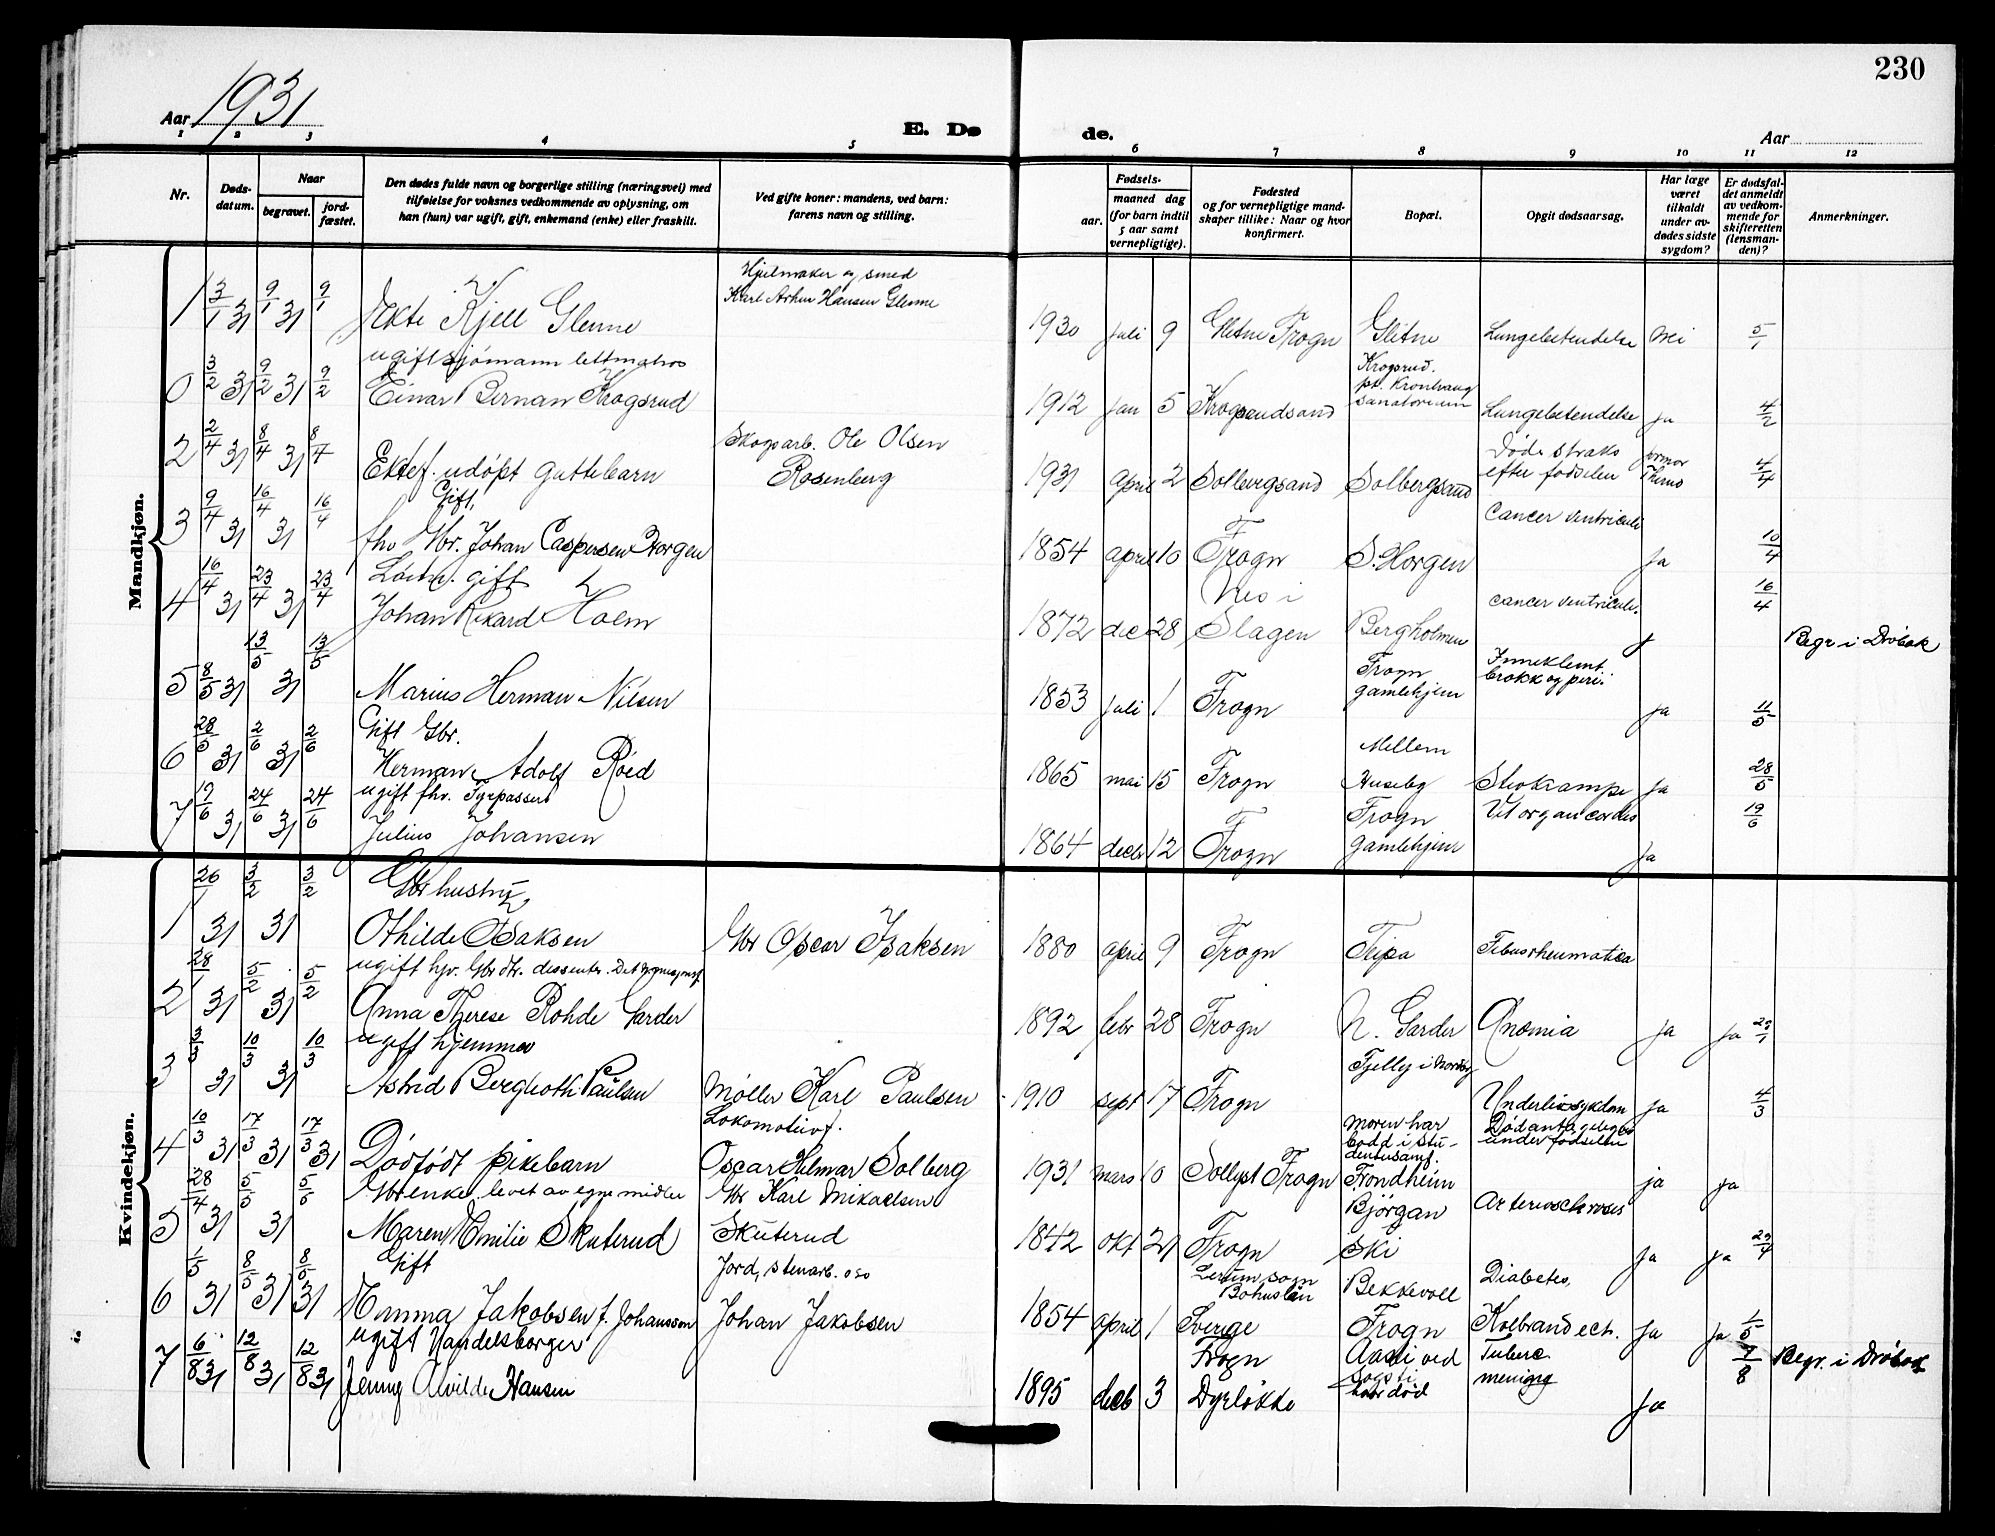 230
Aar 1931
E. Dø de.
Aar
1 2 3 4 5 6 7 8 9 10 11 12
Nr.
Døds-datum.
Naar
begravet.
jord-fæstet.
Den dødes fulde navn og borgerlige stilling (næringsvei) med
tilføielse for voksnes vedkommende av oplysning, om
han (hun) var ugift, gift, enkemand (enke) eller fraskilt.
Ved gifte koner: mandens, ved barn:
farens navn og stilling.
Fødsels-
aar.
maaned dag
(for barn indtil
5 aar samt
vernepligtige).
Fødested
og for vernepligtige mand-
skaper tillike: Naar og hvor
konfirmert.
Bopæl.
Opgit dødsaarsag.
Har læge
været
tilkaldt
under av-
dødes sidste
sygdom?
Er dødsfal-
det anmeldt
av vedkom-
mende for
skifteretten
(lensman-
den)?
Anmerkninger.
Mandkjøn.
Hjulmaker og smed
Karl Arthur Hansen Glenne
1 3/1 31 9/1 31 9/1 Ekte Kjell Glenne 1930 juli 9 Glitne Frogn Glitne Lungebetendelse nei 5/1
ugift sjømann lettmatros
Krogsrud.
pt. Kronhaug
sanatorium
0 3/2 31 9/2 31 9/2 Einar Bernan Krogsrud 1912 jan 5 Lungebetendelse ja 4/2
Skogsarb. Ole Olsen
Døde straks
2 2/4 31 8/4 31 8/4 Ektef. udøpt guttebarn Rosenberg 1931 april 2 Solbergsand Solbergsand efter fødselen 4/4
Gift,
Cancer ventriculi
3 9/4 31 16/4 31 16/4 fhv Gbr. Johan Caspersen Horgen 1854 april 10 Frogn S. Horgen Ja 10/4
gift
Nes i
cancer ventriculi.
4 16/4 31 23/4 31 23/4 Johan Rikard Holm 1872 dec 28 Slagen Bergholmen 16/4 Begr i Drøbak
Frogn
Inneklemt
brokk og peri.
5 8/5 31 13/5 31 13/5 Marius Herman Nilsen 1853 juli 1 Frogn gamlehjem ja 11/5
Gift Gbr.
Mellem
6 28/5 31 2/6 31 2/6 Herman Adolf Røed 1865 mai 15 Frogn Huseby Ja 28/5
ugift fhv. Fyrpasser
Frogn
Vit organ cordis
7 17/6 31 24/6 31 24/6 Julius Johansen 1864 decbr 12 Frogn gamlehjem Ja 19/6
Kvindekjøn.
Gbr hustru
1 26/1 31 3/2 31 3/2 Othilde Isaksen Gbr Oscar Isaksen 1880 april 9 Frogn Tripa Febusrheumatica
ugift
2 28/1 31 5/2 31 5/2 Anna Therese Rohde Garder 1892 febr 28 Frogn N. Garder Anæmia ja ja 29/1
ugift hjemme
3 3/3 31 10/3 31 10/3 Astrid Bergliot Paulsen Møller Karl Paulsen 1910 sept 17 Frogn Underlivssykdom ja 4/3
Lokomotivf.
Moren har
bodd i Stu-
dentersamf.
under fødselen
4 10/3 31 17/3 31 17/3 31 Dødfødt pikebarn Oscar Hilmar Solberg 1931 mars 10 Sollyst Frogn Trondheim ja ja
Gbrenke, levet av egne midler Gbr Karl Mikaelsen
Bjørgan
5 28/4 31 5/5 31 5/5 Maren Emilie Skuterud Skuterud 1842 okt 21 Frogn Ski ja ja 29/4
Gift
Jord, stenarb. oso
Bohuslän
Bekkevoll
Diabetes,
6 1/5 31 8/5 31 8/5 31 Emma Jakobsen f. Johansson Johan Jakobsen 1854 april 1 Sverige Frogn Kolbrand ech. Ja Ja 1/5
ugift Handelsborger
Frogn
Tuberc
7 6/8 31 12/8 31 12/8 31 Jenny Alvilde Hansen 1895 decb 3 Dyrløkke død mening ja 7/8 Begr. i Drøbak